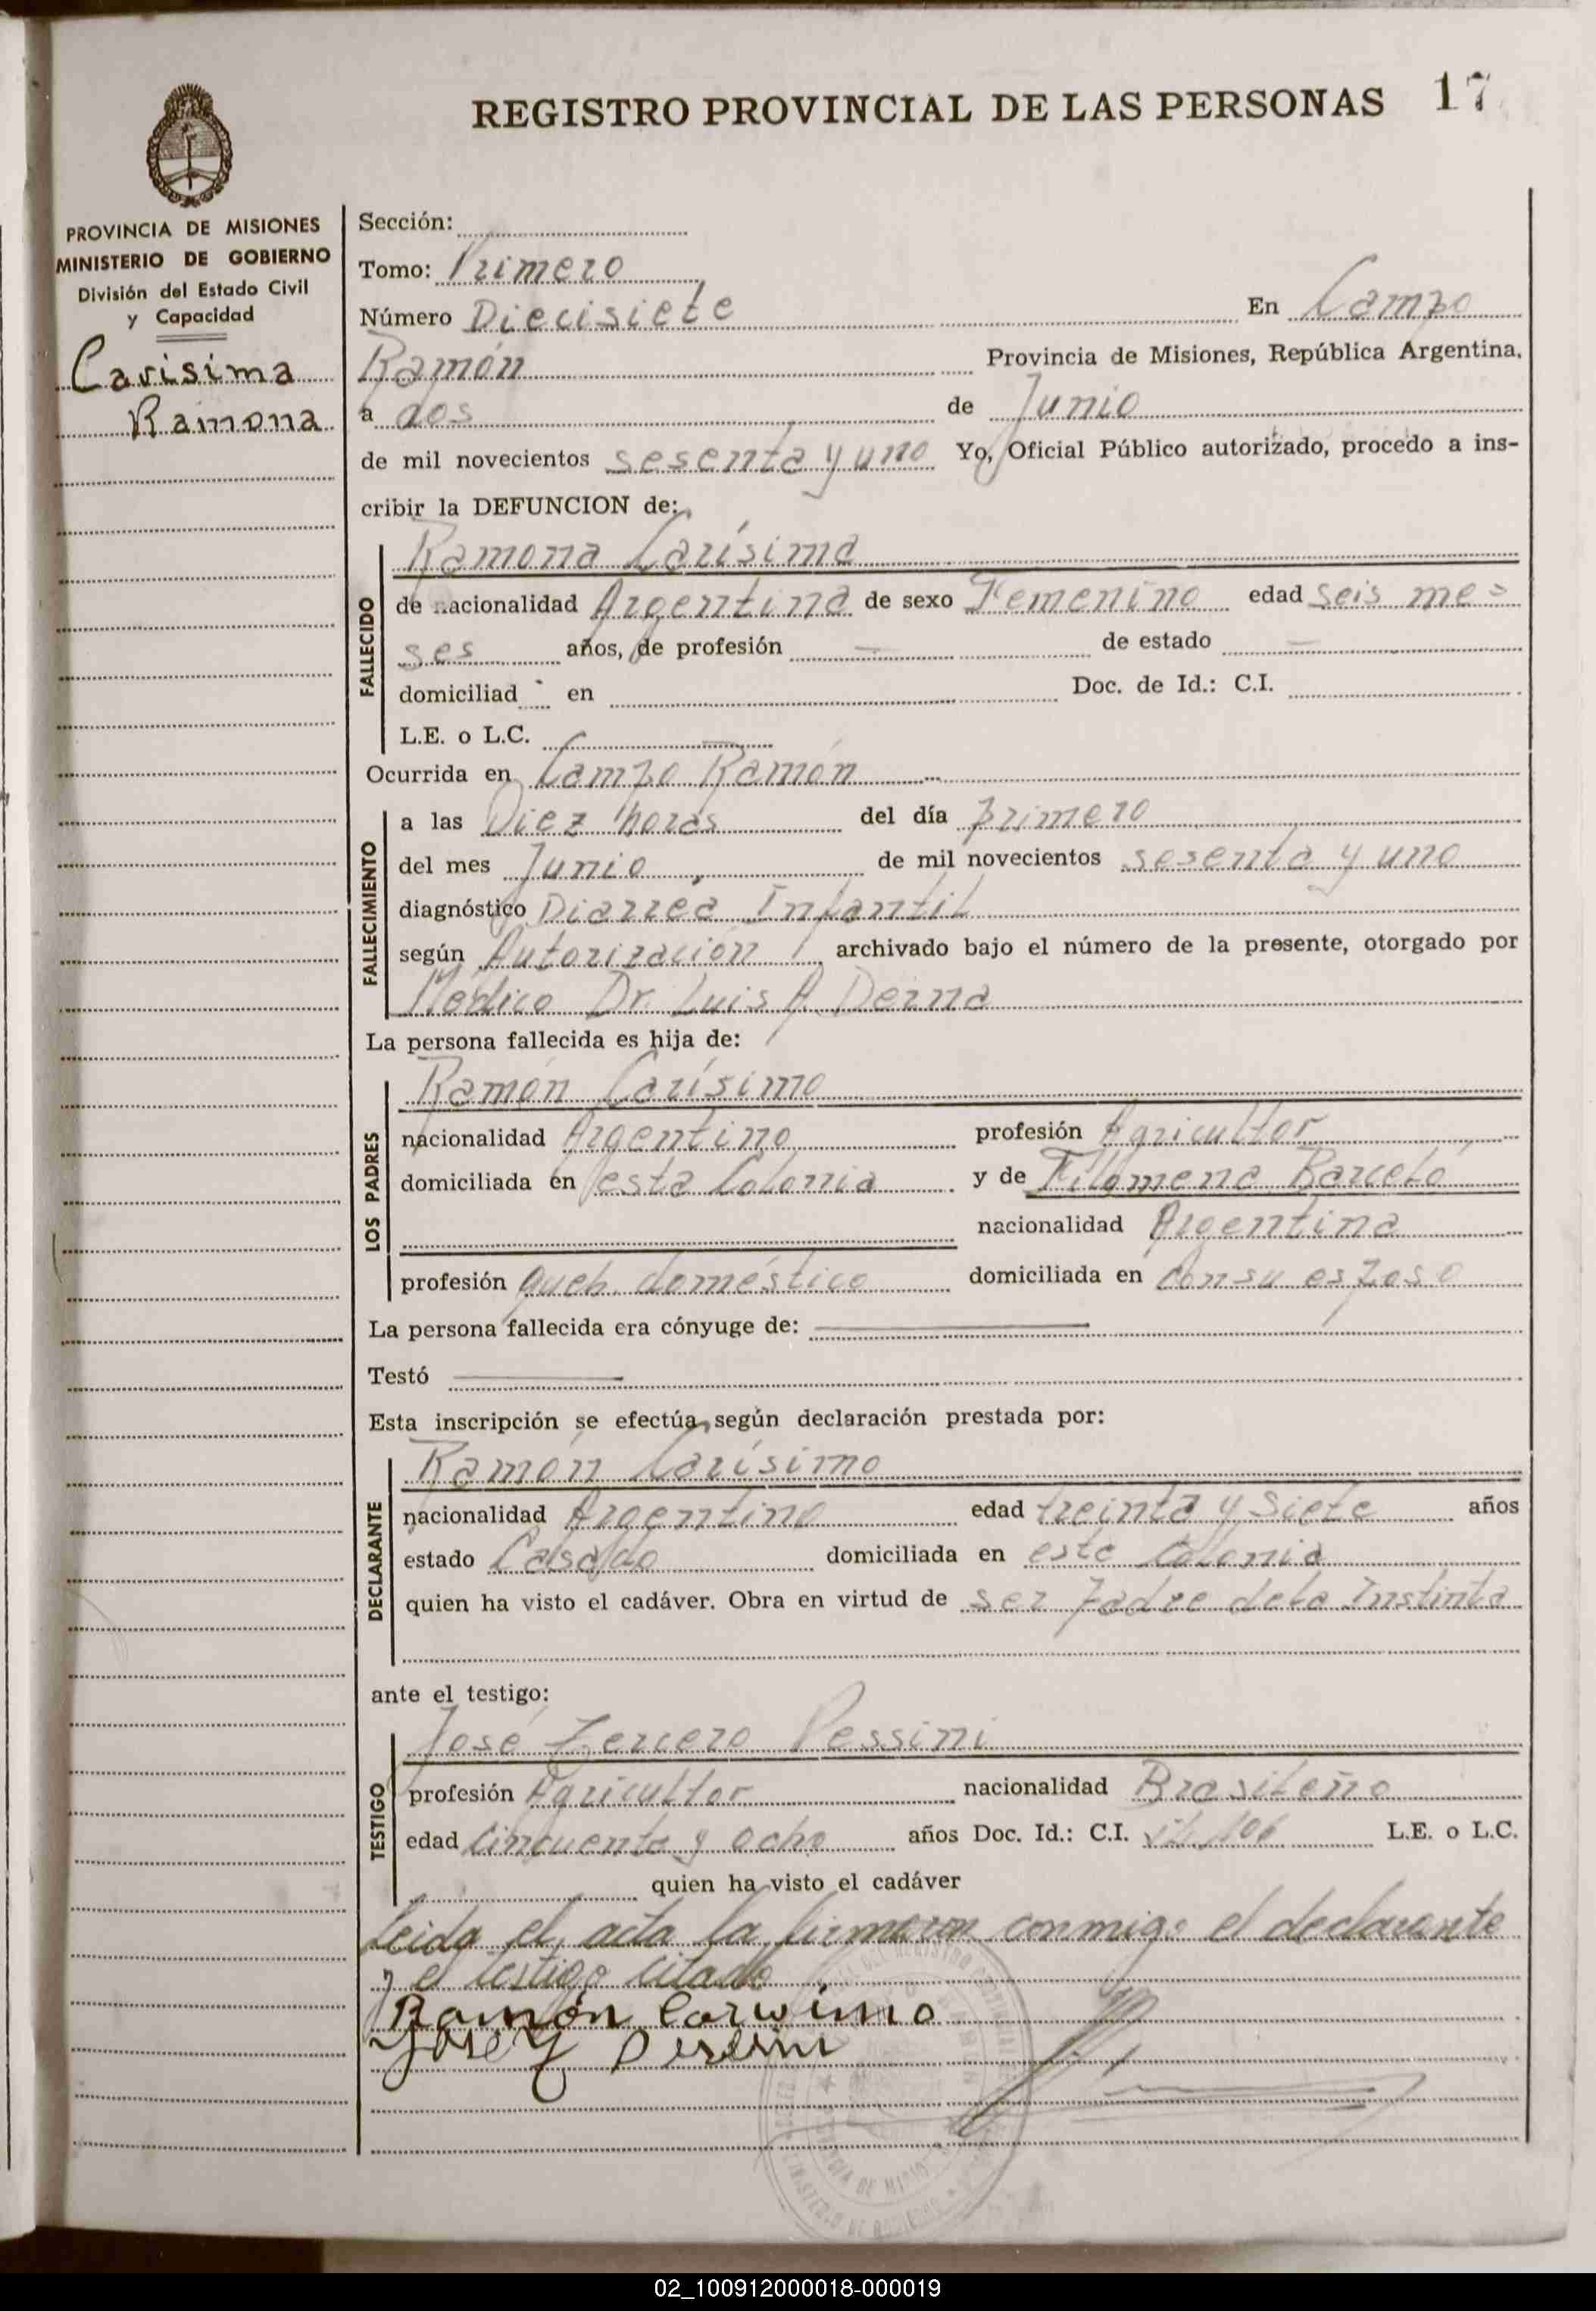 REGISTRO PROVINCIAL DE LAS PERSONAS 17
PROVINCIA DE MISIONES
MINISTERIO DE GOBIERNO
División del Estado Civil
y Capacidad
Carisima
Ramona
Sección:
Tomo: Primero
Número Diecisiete En Campo
Ramón Provincia de Misiones, República Argentina,
a dos de Junio
de mil novecientos sesenta y uno Yo, Oficial Público autorizado, procedo a ins-
cribir la DEFUNCION de:
Ramona Carísima
FALLECIDO
de nacionalidad Argentina de sexo Femenino edad seis me=
ses años, de profesión — de estado —
domiciliad en Doc. de Id.: C.I.
L.E. o L.C.
Ocurrida en Campo Ramón
FALLECIMIENTO
a las Diez horas del día primero
del mes Junio de mil novecientos sesenta y uno
diagnóstico Diarrea Infantil
según Autorización archivado bajo el número de la presente, otorgado por
Médico Dr. Luis A Derna
La persona fallecida es hija de:
LOS PADRES
Ramón Carísimo
nacionalidad Argentino profesión Agricultor
domiciliada en esta Colonia y de Filomena Barceló
nacionalidad Argentina
profesión queh. doméstico domiciliada en con su esposo
La persona fallecida era cónyuge de: —
Testó —
Esta inscripción se efectúa según declaración prestada por:
DECLARANTE
Ramón Carísimo
nacionalidad Argentino edad treinta y Siete años
estado Casado domiciliada en esta Colonia
quien ha visto el cadáver. Obra en virtud de ser padre de la Instinta
ante el testigo:
TESTIGO
José Tercero Pessini
profesión Agricultor nacionalidad Brasileño
edad Cincuenta y ocho años Doc. Id.: C.I. L.E. o L.C.
quien ha visto el cadáver
Leida el acta la firmaron conmigo el declarante
y el testigo citado
Ramón Carisimo
José T Pessini
02_100912000018-000019